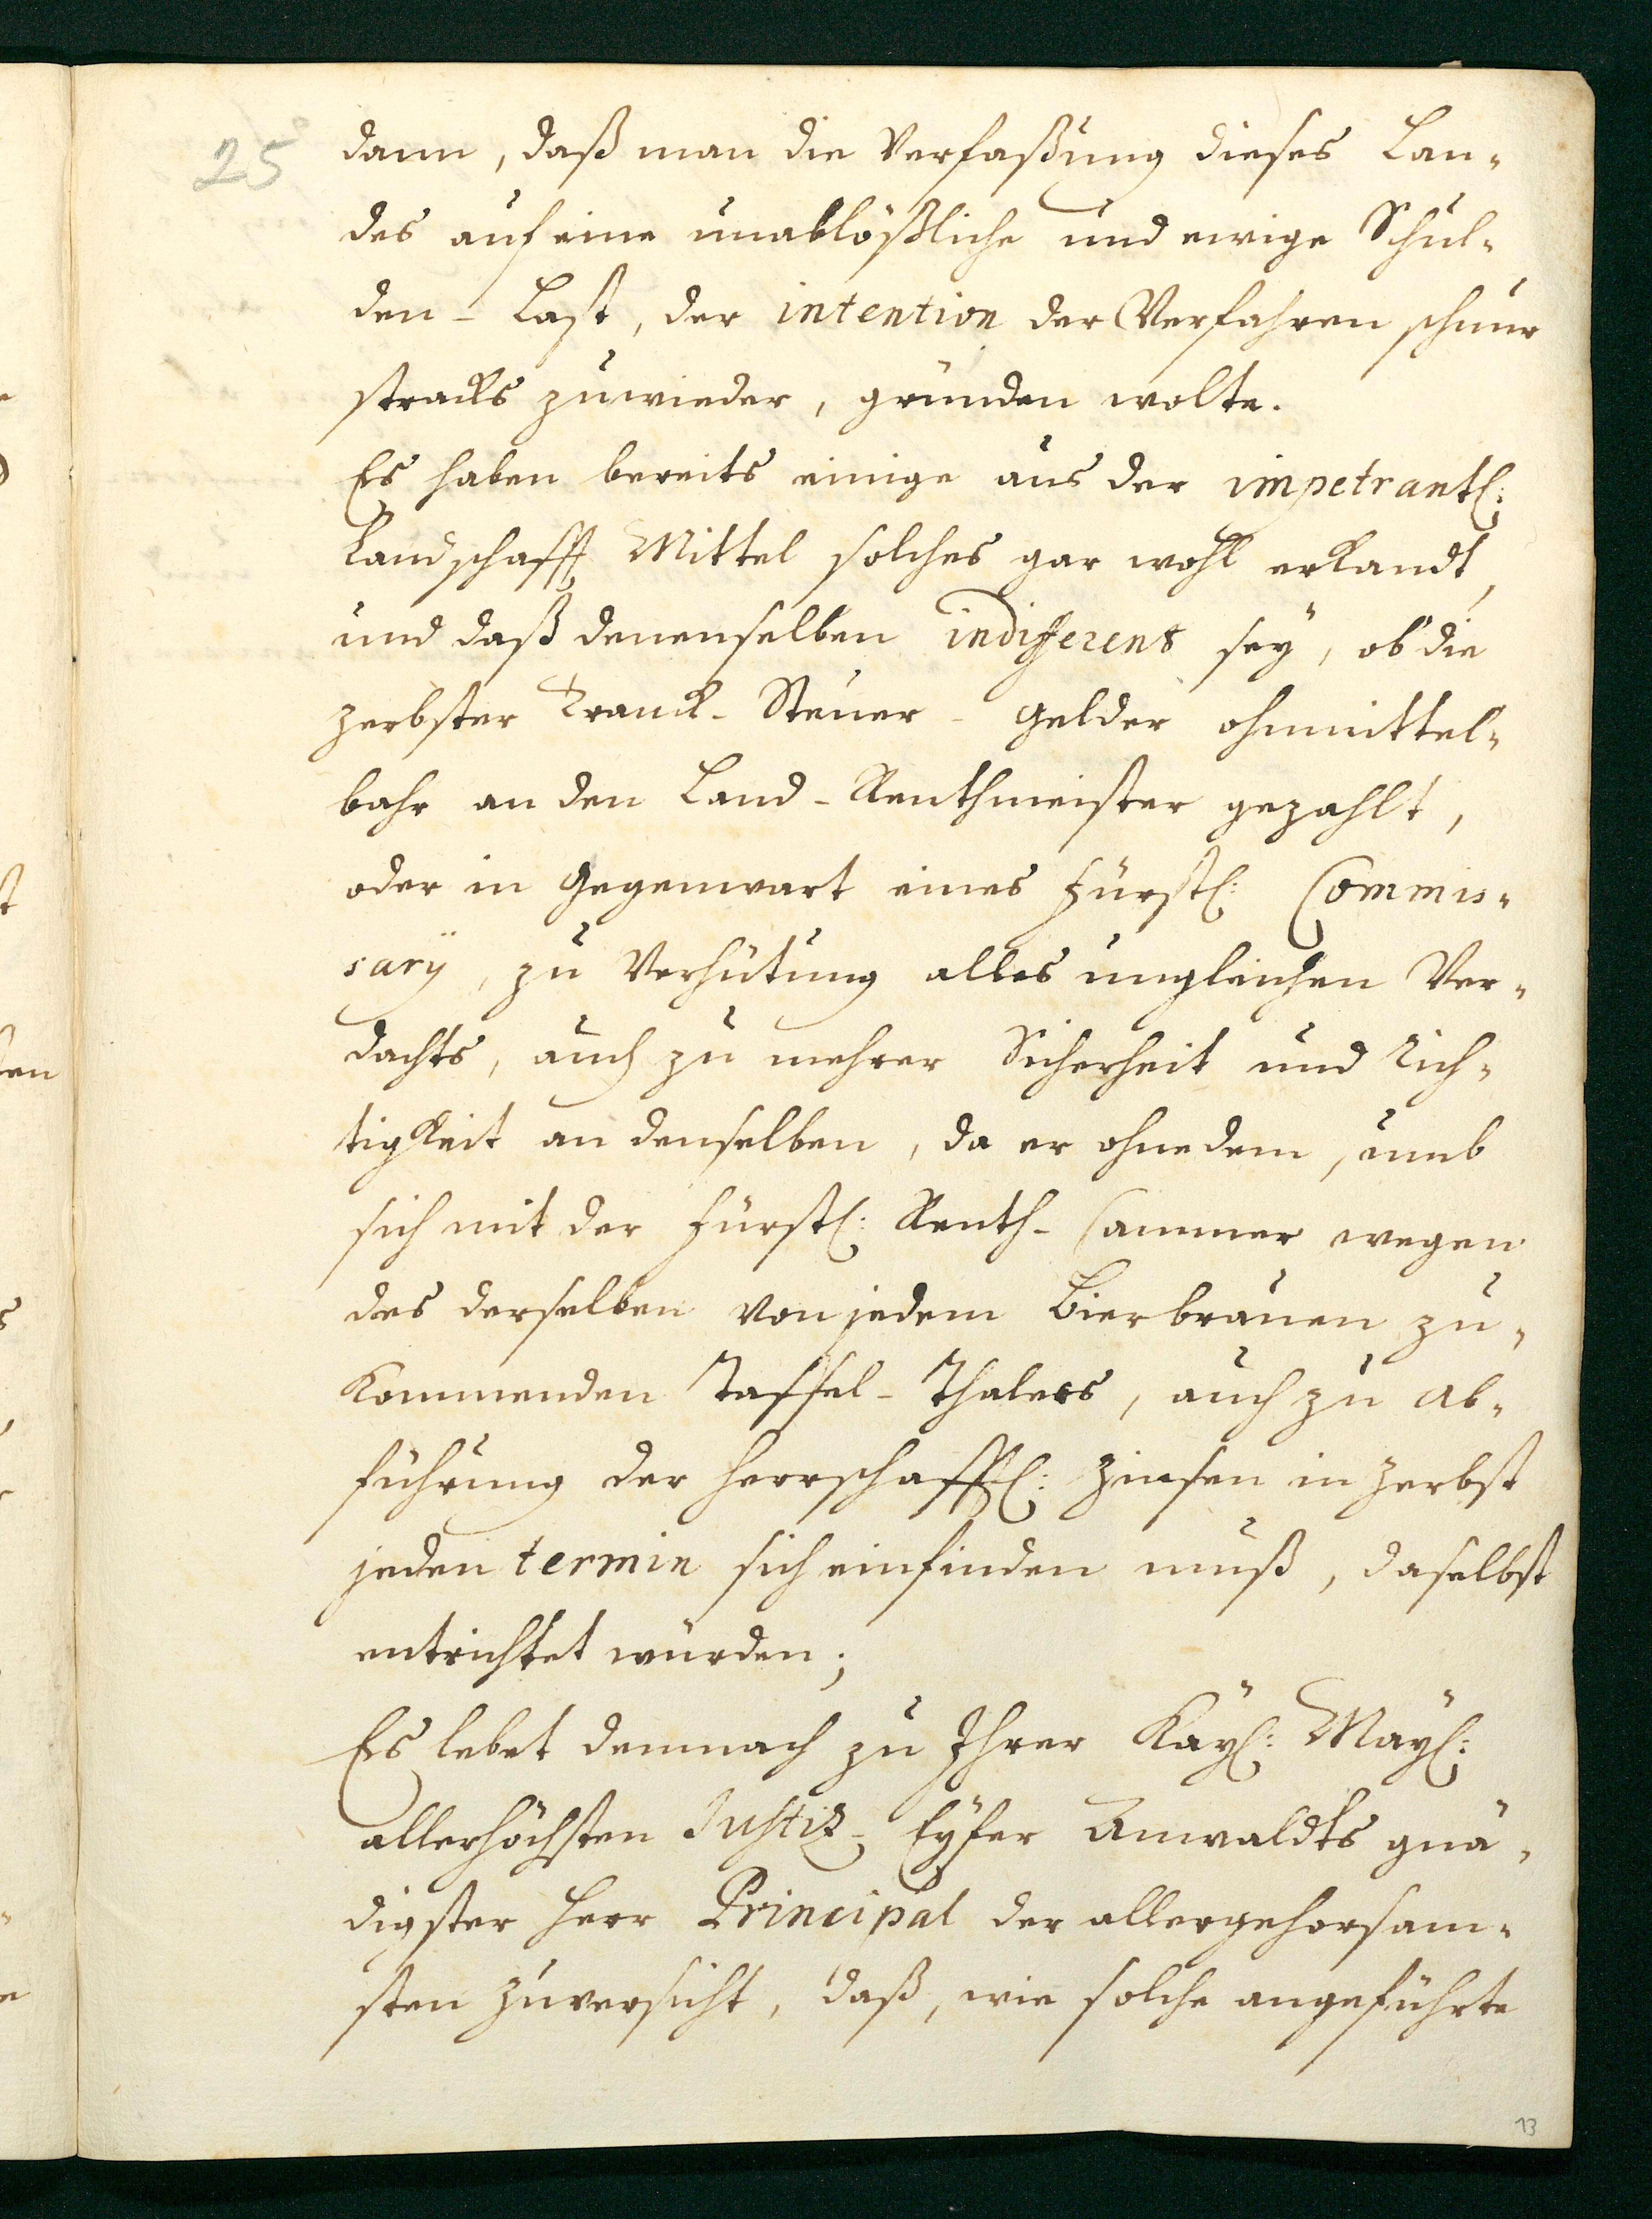 25
dann, daß man die Verfaßung dieses Lan-
des auf eine unablößliche und ewige Schul-
den-Last, der intention der Vorfahren schnur
stracks zuwieder, gründen wolte.
Es haben bereits einige aus der impetrantl:
Landschafft Mittel solches gar wohl erkandt,
und daß denenselben indifferent sey, ob die
Zerbster Tranck-Steuer-Gelder ohnmittel-
bahr an den Land-Renthmeister gezahlt,
oder in Gegenwart eines Fürstl: Commis-
sarij, zu Verhütung alles ungleichen Ver-
dachts, auch zu mehrer Sicherheit und Rich-
tigkeit an denselben, da er ohnedem, umb
sich mit der Fürstl: Renth-Cammer wegen
des derselben von jedem Bierbrauen zu-
kommenden Taffel-Thalers, auch zu Ab-
führung der Herrschafftl: Zinsen in Zerbst
jeden termin sich einfinden muß, daselbst
entrichtet würden;
Es lebet demnach zu Ihrer Kayl: Mayl:
allerhöchsten Justiz-Eyfer Anwaldts gnä-
digster Herr Principal der allergehorsam-
sten Zuversicht, daß, wie solche angeführte
13